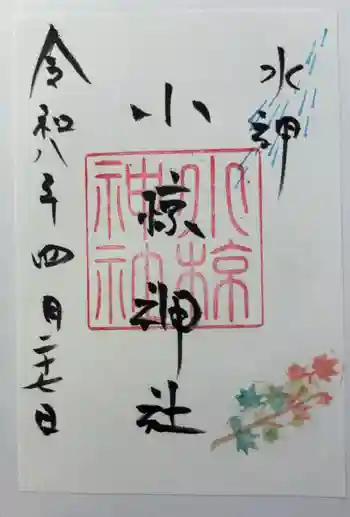 水神
小椋神社
令和八年四月二十七日
小椋神社